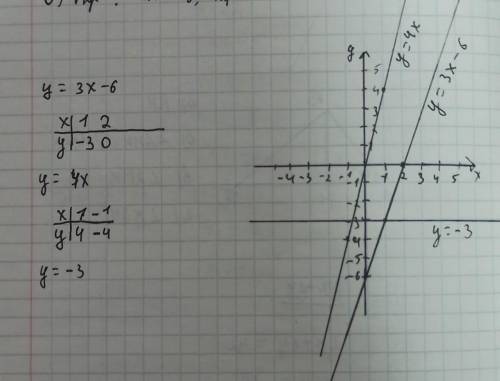 y = 3x-6
x 1 2
y -3 0
y = 4x
x 1 -1
y 4 -4
y = -3
y
5
4
3
1
-4 -3 -2 -1 0 1 2 3 4 5 x
-1
3
-4
-5
-6
y=4x
y=3x-6
y=-3